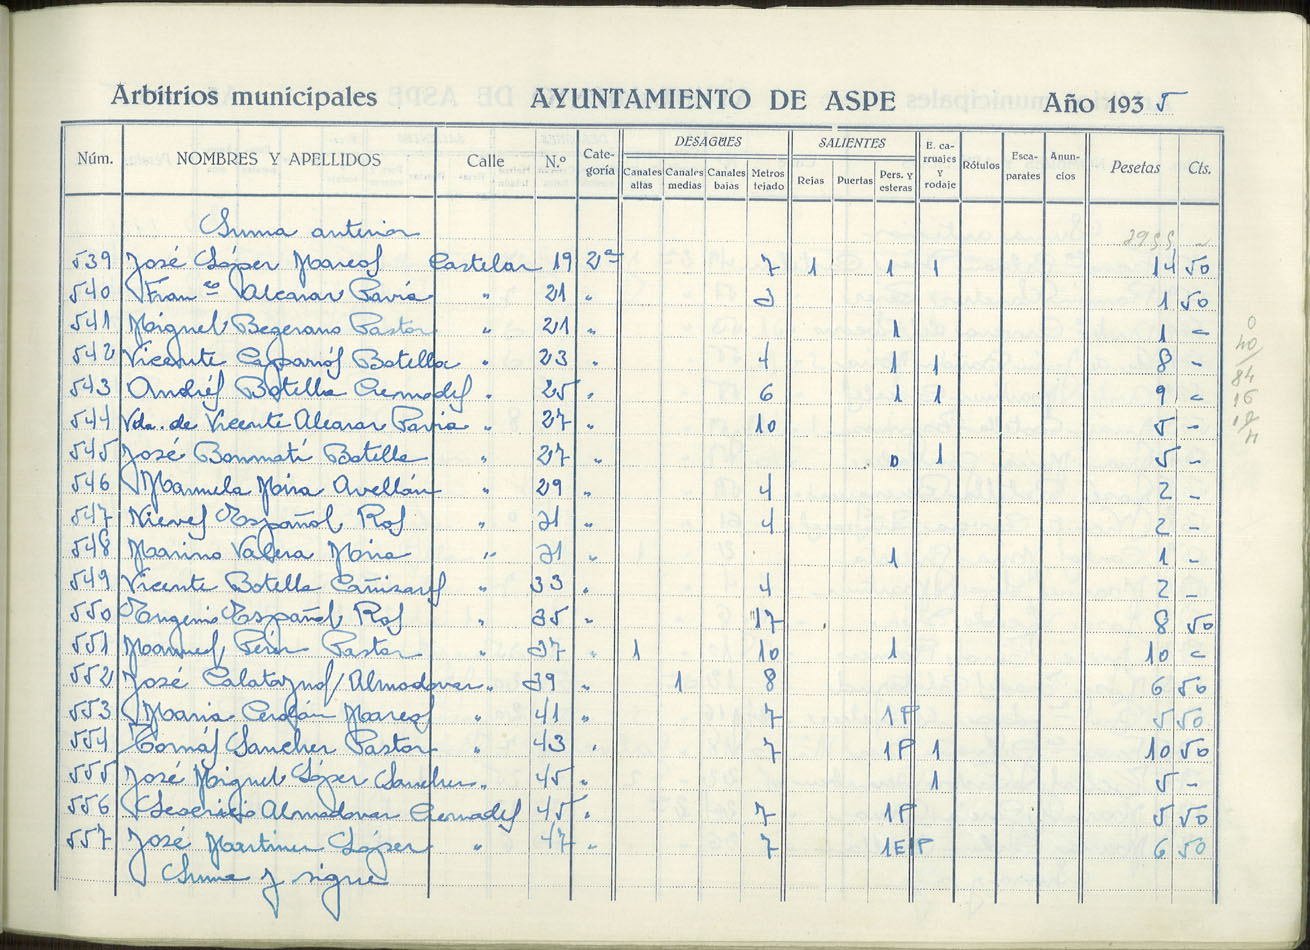 Arbitrios municipales AYUNTAMIENTO DE ASPE Año 1935
Núm. NOMBRES Y APELLIDOS Calle N.º Cate-goría DESAGÜES Canales altas Canales medias Canales bajas Metros tejado SALIENTES Rejas Puertas Pers. y esteras E. ca-rruajes y rodaje Rótulos Esca-parates Anun-cios Pesetas Cts.
Suma anterior
539 José López Mareos Castelar 19 2ª 7 1 1 1 14 50
540 Franco Alcaraz Pavía " 21 " 3 1 50
541 Miguel Begerano Pastor " 21 " 1 1 -
542 Vicente Botella " 23 " 4 1 1 8 -
543 Andrés Botella Cremades " 25 " 6 1 1 9 -
544 Vda. de Vicente Alcaraz Pavía " 27 " 10 5 -
545 José Bonmatí Botella " 27 " 0 1 5 -
546 Manuela Mira Avellán " 29 " 4 2 -
547 Nieves Español Ros " 31 " 4 2 -
548 Marino Valera Mira " 31 " 1 1 -
549 Vicente Botella Cañizares " 33 " 4 2 -
550 Eugenio Español Ros " 35 " 17 8 50
551 Manuel Pérez Pastor " 37 " 1 10 1 10 -
552 José Calatayud Almodovar " 39 " 1 8 6 50
553 Maria Cerdán Mareos " 41 " 7 1P 5 50
554 Tomás Sanchez Pastor " 43 " 7 1P 1 10 50
555 José Miguel López Sanchez " 45 " 1 5 -
556 Almodovar Cremades 45 " 7 1P 5 50
557 José Martinez López " 47 " 7 1E P 6 50
Suma y sigue